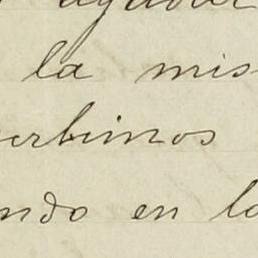 la mis
erbimos
ndo en lo